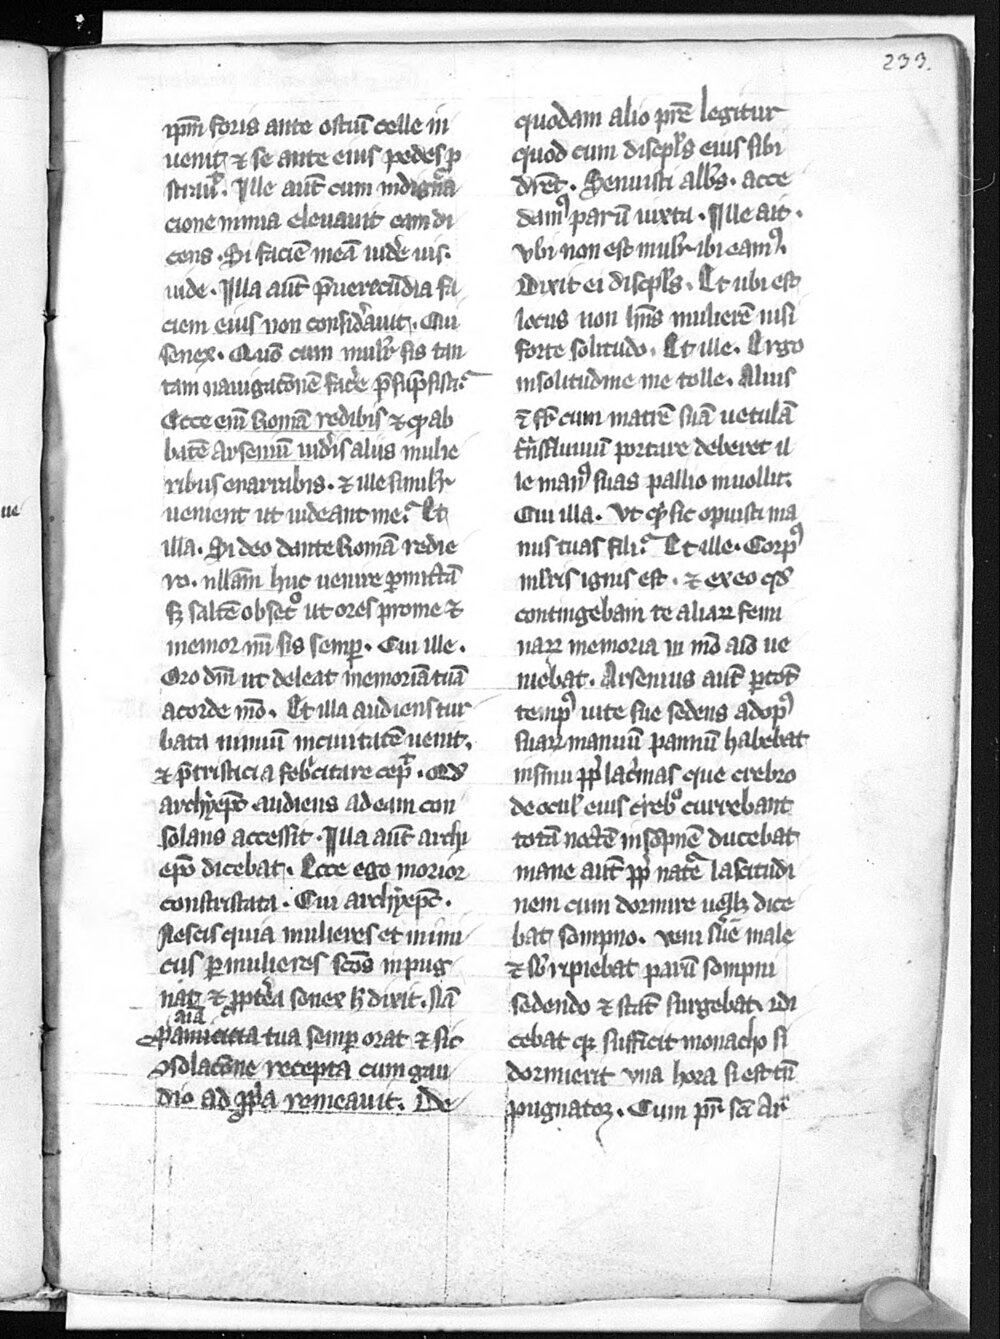 233.
ipm̄ foris ante ostiū celle in
uenit et se ante eius pedes p
strauit. Ille aut̄ cum indigna
cione nimia eleuauit eam di
cens. Si faciē meā uidere uis.
uide. Illa aut̄ p̄ uerecūdia fa
ciem eius non considerauit. Cui
senex. Quō cum mulier sis tan
tam nauigacōnē facere p̄sūpsisti
Ecce enī Romā redibis et qd ab
batē Arseniū uideris aliis mulie
ribus enarrabis. et ille similr̄
uenient ut uideant me. Et
illa. Si deo dante Romā redie
ro. nullam huc uenire permittā
sȝ saltē obsecro ut ores pro me et
memor mī sis semper. Cui ille.
Oro dm̄ ut deleat memoriā tuā
a corde meo. Et illa audiens tur
bata nimiū in ciuitatē uenit.
et p̄ tristicia febricitare cepit. Qd
archyep̄c audiens ad eam con
solans accessit. Illa aut̄ archy
ep̄o dicebat. Ecce ego morior
constristata. Cui archyep̄c.
Nescis quia mulieres et inimi
cus per mulieres sc̄os inpug
nat et ppterea senex h̄ dixit. nā
aīa
p amicicia tua semper orat et sic
9solacōne recepta cum gau
dio ad ppria remeauit. De
quodam alio pr̄e legitur
quod cum discpl̄s eius sibi
diret. Senuisti abbas. acce
dam9 parū iuxta. Ille ait.
Vbi non est mulr̄ ibi eam9.
Dixit ei discpl̄s. Et ubi est
locus non hn̄s mulierē nisi
forte solitudo. Et ille. Ergo
in solitudine me tolle. Alius
et fr̄ cum matrē suā uetulā
tn̄s fluuiū portare deberet il
le man9 suas pallio inuoluit.
Cui illa. Vt qd sic opuisti ma
nus tuas fili. Et ille. Corp9
mulieris ignis est. et ex eo qd
contingebam te aliarȝ femi
narȝ memoria in meo aīo ue
niebat. Arsenius aut̄ per totū
temp9 uite sue sedens ad op9
suarȝ manuū pannū habebat
in sinu pp̄ lacrimas que crebro
de ocul̄ eius crebro currebant
totā noctē insōpnē ducebat
mane aut̄ pp̄ nature lascitudi
nem cum dormire uellȝ dice
bat sompno. veni sue male
et sr̄ ripiebat parū sompni
sedendo et stati surgebat. idi
cebat qȝ sufficit monacho si
dormierit vna hora si est tn̄
pugnator. Cum pr̄ sc̄i Ar